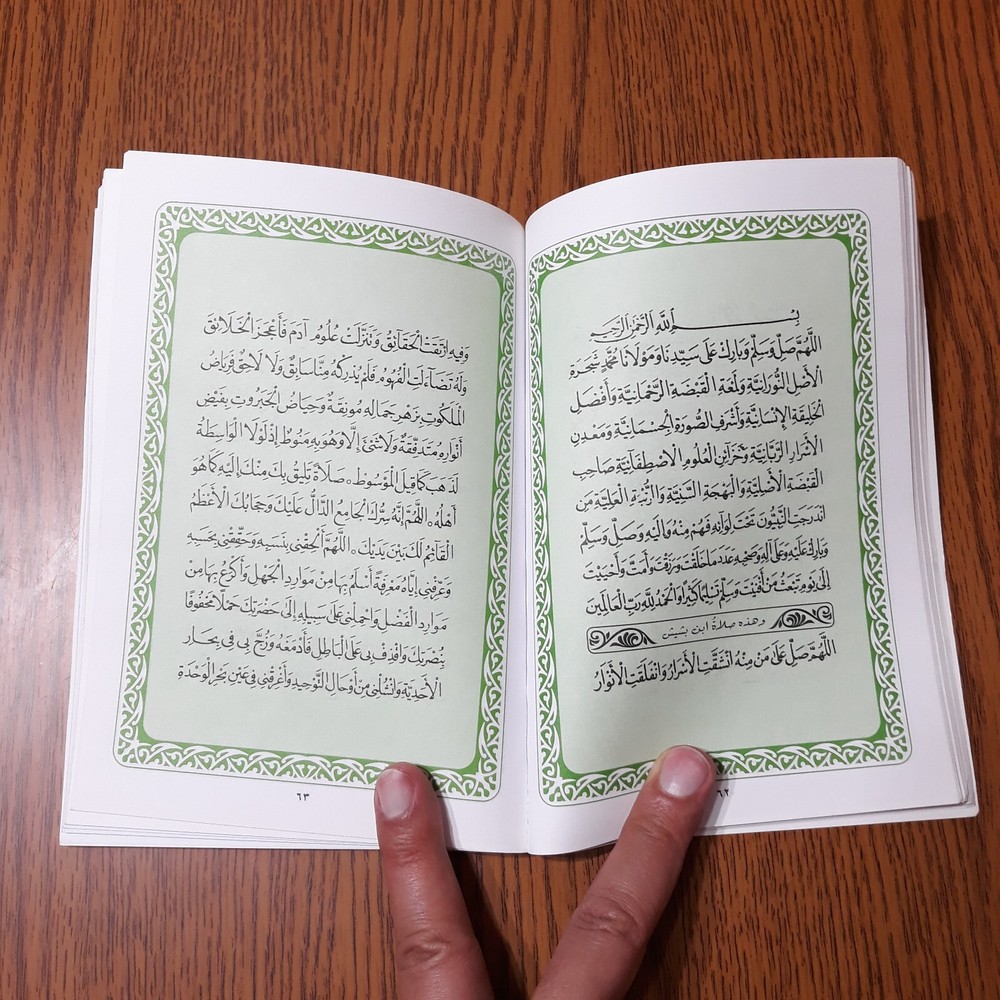 بِسْمِ اللَّهِ الرَّحْمٰنِ الرَّحِيمِ
اللَّهُمَّ صَلِّ وَسَلِّمْ وَبَارِكْ عَلَى سَيِّدِنَا وَمَوْلَانَا مُحَمَّدٍ شَجَرَةِ
الْأَصْلِ النُّورَانِيَّةِ وَلَمْعَةِ الْقَبْضَةِ الرَّحْمَانِيَّةِ وَأَفْضَلِ
الْخَلِيقَةِ الْإِنْسَانِيَّةِ وَأَشْرَفِ الصُّورَةِ الْجِسْمَانِيَّةِ وَمَعْدِنِ
الْأَسْرَارِ الرَّبَّانِيَّةِ وَخَزَائِنِ الْعُلُومِ الْاِصْطِفَائِيَّةِ صَاحِبِ
الْقَبْضَةِ الْأَصْلِيَّةِ وَالْبَهْجَةِ السَّنِيَّةِ وَالرُّتْبَةِ الْعَلِيَّةِ مَنِ
انْدَرَجَتِ النَّبِيُّونَ تَحْتَ لِوَائِهِ فَهُمْ مِنْهُ وَإِلَيْهِ وَصَلِّ وَسَلِّمْ
وَبَارِكْ عَلَيْهِ وَعَلَى آلِهِ وَصَحْبِهِ عَدَدَ مَا خَلَقْتَ وَرَزَقْتَ وَأَمَتَّ وَأَحْيَيْتَ
إِلَى يَوْمِ تَبْعَثُ مَنْ أَفْنَيْتَ وَسَلِّمْ تَسْلِيمًا كَثِيرًا وَالْحَمْدُ لِلَّهِ رَبِّ الْعَالَمِينَ
وهذه صلاةُ ابن بشيش
اللَّهُمَّ صَلِّ عَلَى مَنْ مِنْهُ انْشَقَّتِ الْأَسْرَارُ وَانْفَلَقَتِ الْأَنْوَارُ
٦٢
وَفِيهِ ارْتَقَتِ الْحَقَائِقُ وَتَنَزَّلَتْ عُلُومُ آدَمَ فَأَعْجَزَ الْخَلَائِقَ
وَلَهُ تَضَاءَلَتِ الْفُهُومُ فَلَمْ يُدْرِكْهُ مِنَّا سَابِقٌ وَلَا لَاحِقٌ فَرِيَاضُ
الْمَلَكُوتِ بِزَهْرِ جَمَالِهِ مُونِقَةٌ وَحِيَاضُ الْجَبَرُوتِ بِفَيْضِ
أَنْوَارِهِ مُتَدَفِّقَةٌ وَلَا شَيْءَ إِلَّا وَهُوَ بِهِ مَنُوطٌ إِذْ لَوْلَا الْوَاسِطَةُ
لَذَهَبَ كَمَا قِيلَ الْمَوْسُوطُ ۞ صَلَاةً تَلِيقُ بِكَ مِنْكَ إِلَيْهِ كَمَا هُوَ
أَهْلُهُ ۞ اللَّهُمَّ إِنَّهُ سِرُّكَ الْجَامِعُ الدَّالُّ عَلَيْكَ وَحِجَابُكَ الْأَعْظَمُ
الْقَائِمُ لَكَ بَيْنَ يَدَيْكَ ۞ اللَّهُمَّ أَلْحِقْنِي بِنَسَبِهِ وَحَقِّقْنِي بِحَسَبِهِ
وَعَرِّفْنِي إِيَّاهُ مَعْرِفَةً أَسْلَمُ بِهَا مِنْ مَوَارِدِ الْجَهْلِ وَأَكْرَعُ بِهَا مِنْ
مَوَارِدِ الْفَضْلِ وَاحْمِلْنِي عَلَى سَبِيلِهِ إِلَى حَضْرَتِكَ حَمْلًا مَحْفُوفًا
بِنُصْرَتِكَ وَاقْذِفْ بِي عَلَى الْبَاطِلِ فَأَدْمَغَهُ وَزُجَّ بِي فِي بِحَارِ
الْأَحَدِيَّةِ وَانْشُلْنِي مِنْ أَوْحَالِ التَّوْحِيدِ وَأَغْرِقْنِي فِي عَيْنِ بَحْرِ الْوَحْدَةِ
٦٣